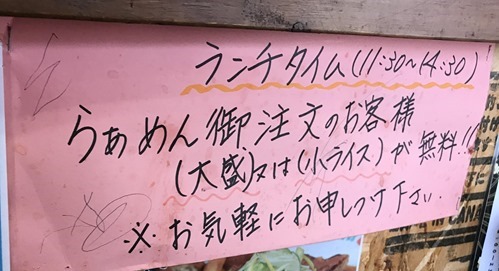 ランチタイム(11:30~14:30)
らぁめん御注文のお客様
(大盛)又は(小ライス)が無料!!
※お気軽にお申しつけ下さい.